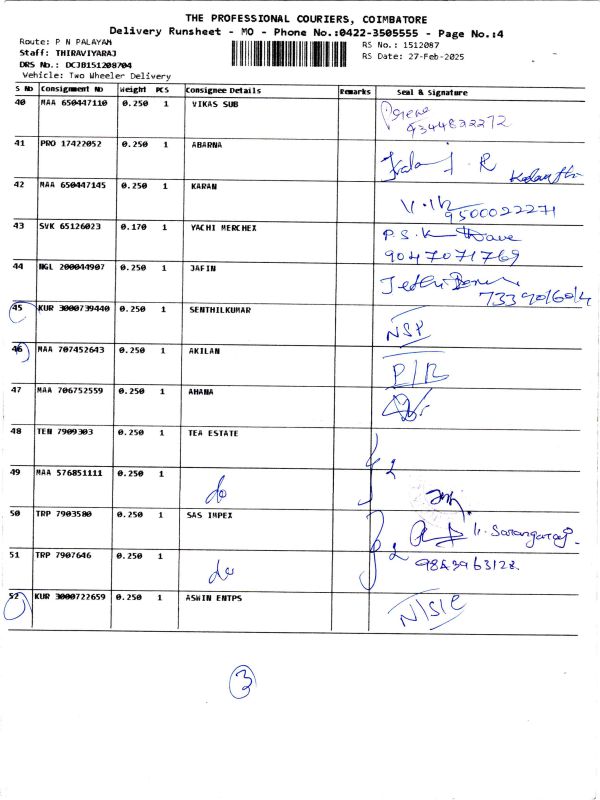 THE PROFESSIONAL COURIERS, COIMBATORE
Delivery Runsheet - MO - Phone No.:0422-3505555 - Page No.:4
Route: P N PALAYAM
RS No.: 1512087
Staff: THIRAVIYARAJ
RS Date: 27-Feb-2025
DRS No.: DCJB151208704
Vehicle: Two Wheeler Delivery
S No Consignment No Weight PCS Consignee Details Remarks Seal & Signature
40 MAA 650447110 0.250 1 VIKAS SUB
9344822272
41 PRO 17422052 0.250 1 ABARNA
42 MAA 650447145 0.250 1 KARAN
9500022271
43 SVK 65126023 0.170 1 YACHI MERCHEX P.S.K
9047071769
44 NGL 200044907 0.250 1 JAFIN
7339016014
45 KUR 3000739440 0.250 1 SENTHILKUMAR NSP
46 MAA 707452643 0.250 1 AKILAN P/R
47 MAA 706752559 0.250 1 AHANA
48 TEN 7909303 0.250 1 TEA ESTATE
2
49 MAA 576851111 0.250 1 do
50 TRP 7903580 0.250 1 SAS IMPEX
2
51 TRP 7907646 0.250 1 do
52 KUR 3000722659 0.250 1 ASWIN ENTPS N/S/C
3